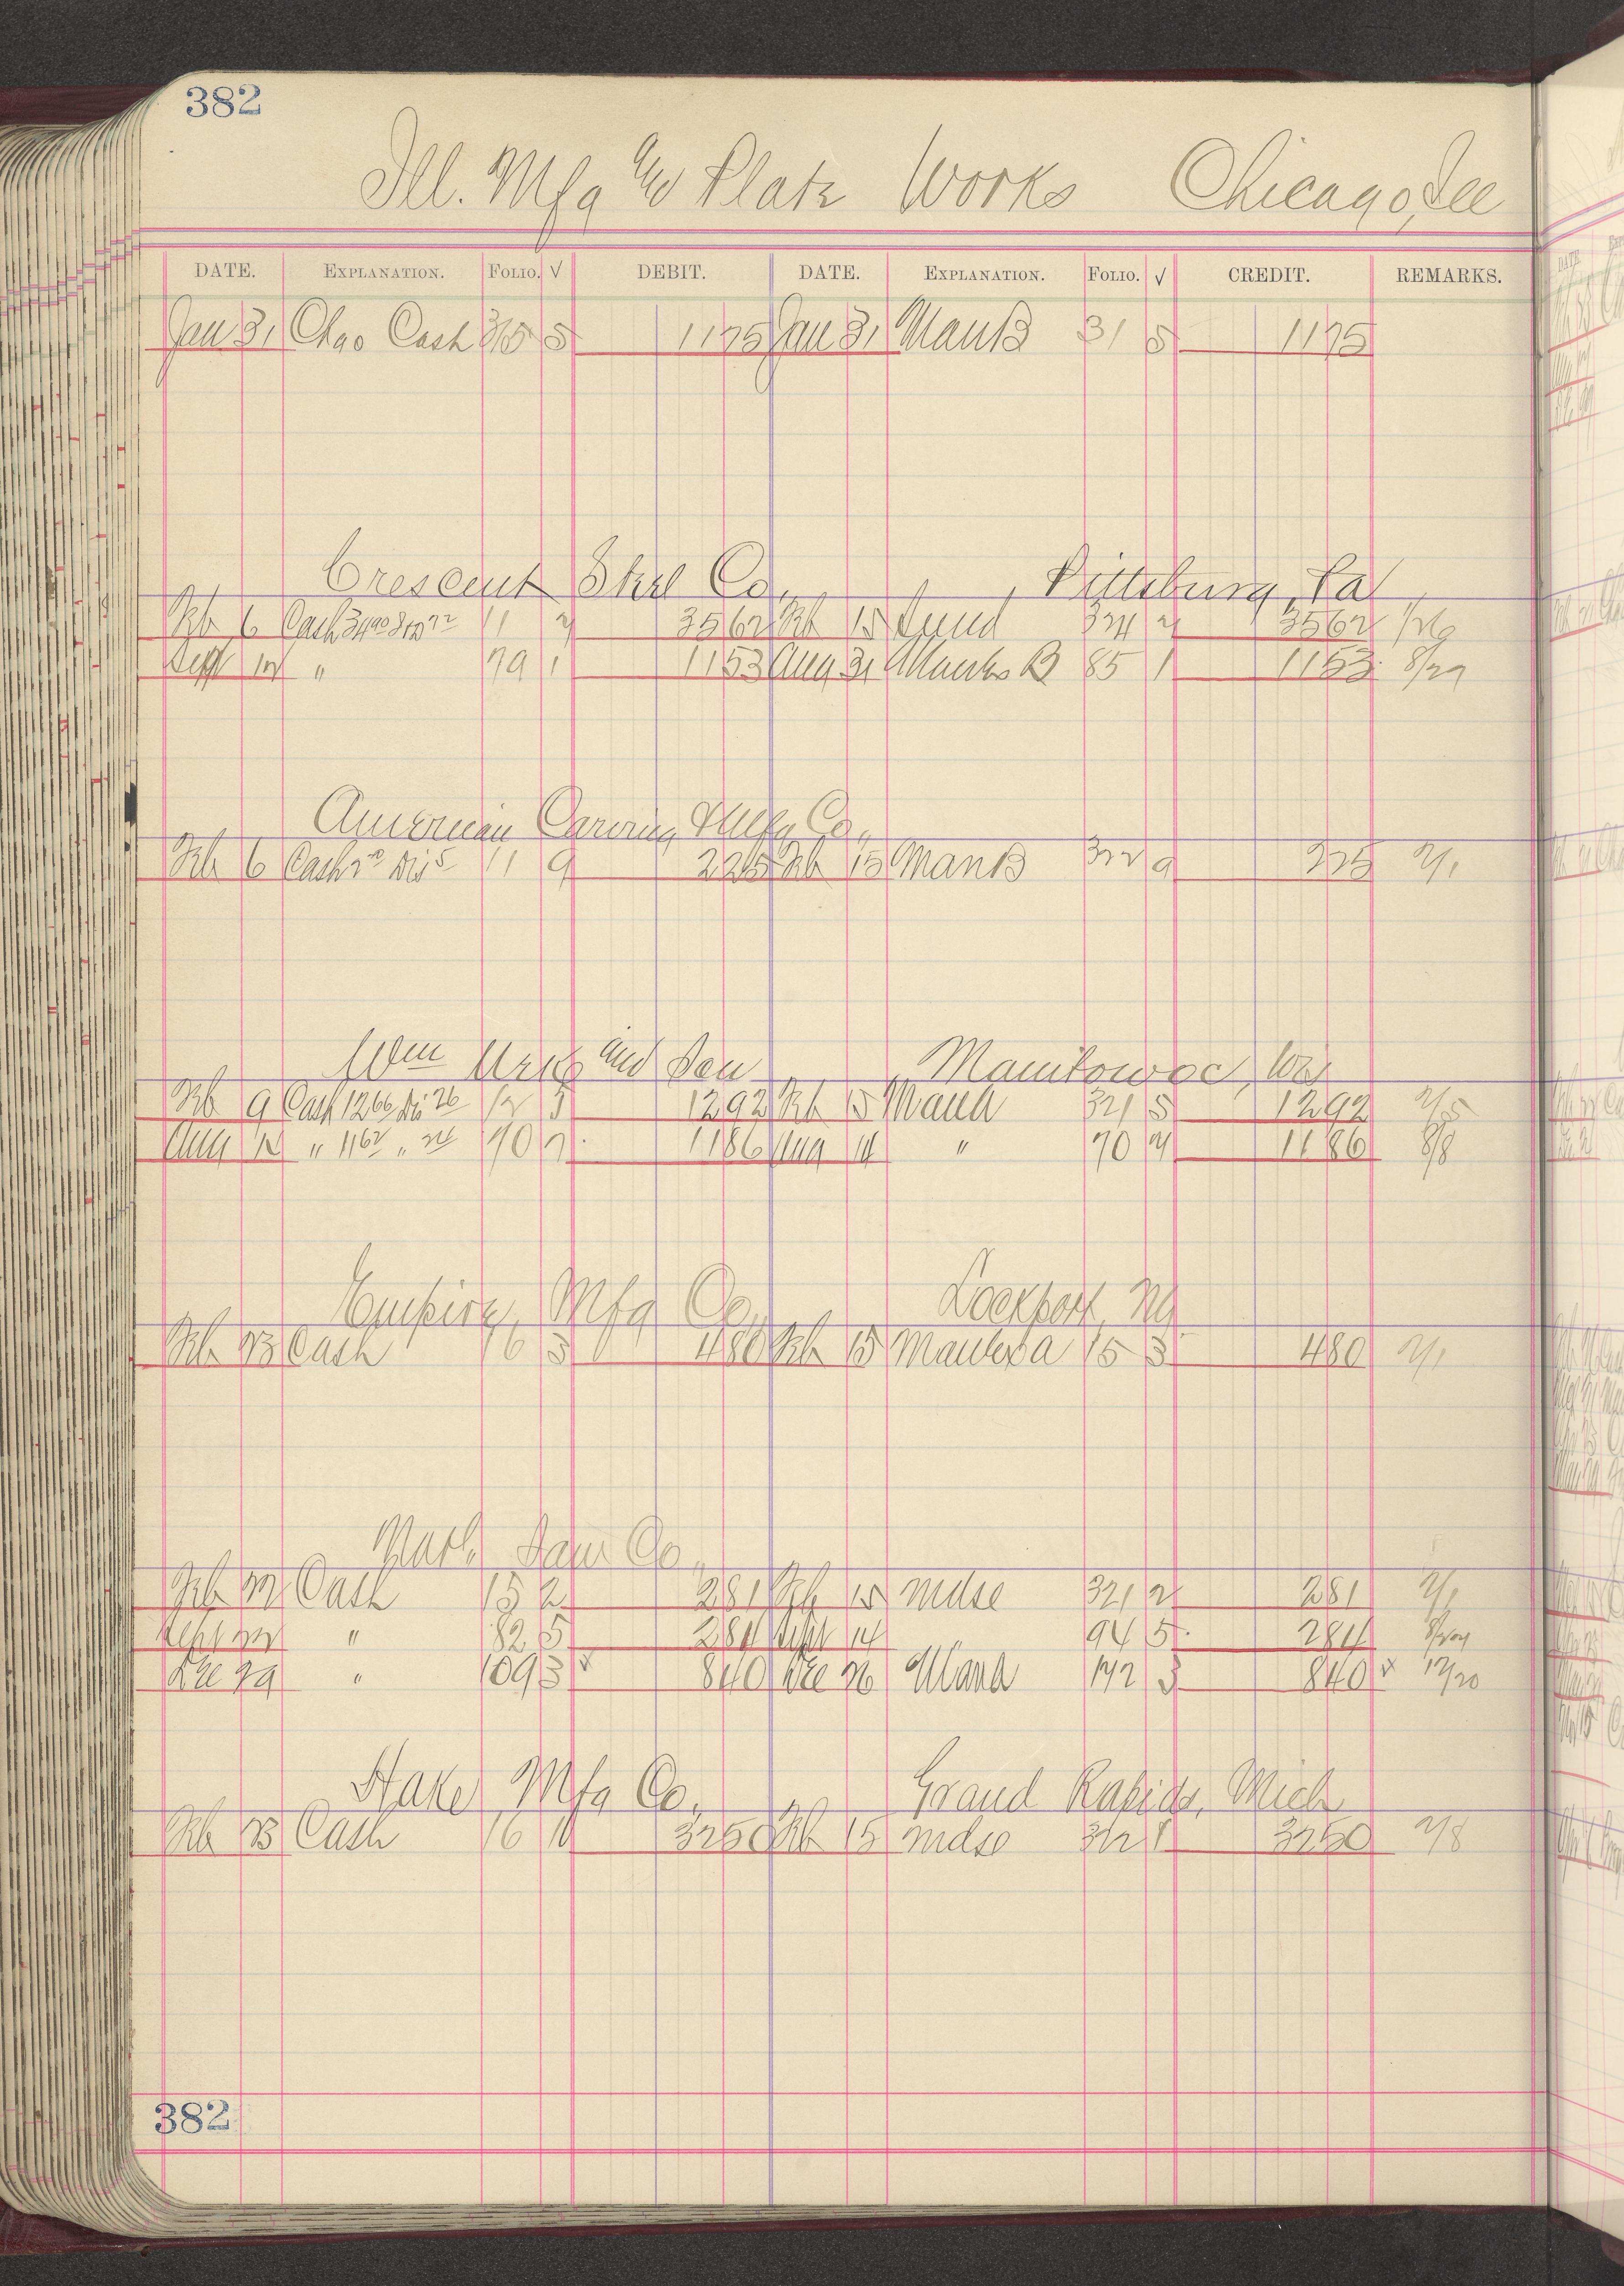 382
Ill. Mfg and Plate Works Chicago, Ill
DATE. EXPLANATION. FOLIO. √ DEBIT. DATE. EXPLANATION. FOLIO. √ CREDIT. REMARKS.
Jan 31 Cash 315 5 1175 Jan 31 Man B 31 5 1175
Crescent Steel Co., Pittsburg, Pa
Feb 6 Cash 11 2 3562 Feb 15 324 2 3562 1/26
Sept 12 " 79 1 1153 Aug 31 B 85 1 1153 8/29
American Carving & Mfg Co.,
Feb 6 Cash Dis 11 9 225 Feb 15 Man B 322 9 225 2/1
Wm and Son Manitowoc, Wis
Feb 9 Cash 1266 Dis 26 12 5 1292 Feb 15 Mana 321 5 1292 2/5
Aug 12 " 1162 " 24 70 2 1186 Aug 14 " 70 2 1186 8/8
Empire Mfg Co., Lockport, NY
Feb 23 Cash 16 3 480 Feb 15 15 3 480 2/1
Saw Co.,
Feb 22 Cash 15 2 281 Feb 15 Mdse 321 2 281 2/1
Sept 22 " 82 5 284 Sept 14 94 5 284
Dec 29 " 109 3 840 Dec 26 Mana 142 3 840 12/20
Hake Mfg Co., Grand Rapids, Mich
Feb 23 Cash 16 3250 Feb 15 Mdse 322 1 3250 2/8
382